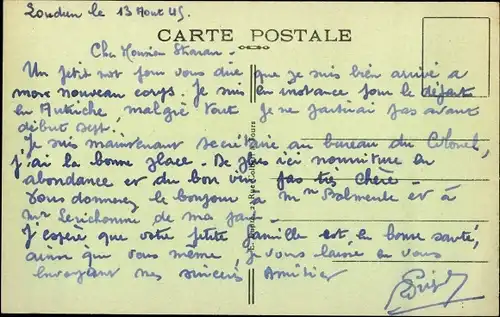 Loudun le 13 Aout 45.
CARTE POSTALE
Cher Monsieur
Un petit mot pour vous dire que je suis bien arrivé a
mon nouveau corps. Je suis en instance pour le départ
en Autriche, malgré tout je ne partirai pas avant
début sept.
Je suis maintenant secrétaire au bureau du Colonel,
j'ai la bonne place. De plus ici nourriture en
abondance et du bon vin pas très chère.
Vous donnerez le bonjour à Mme et à
Mr de ma part.
J'espère que votre petite famille est en bonne santé,
ainsi que vous même, je vous laisse en vous
envoyant mes sincères Amitiés